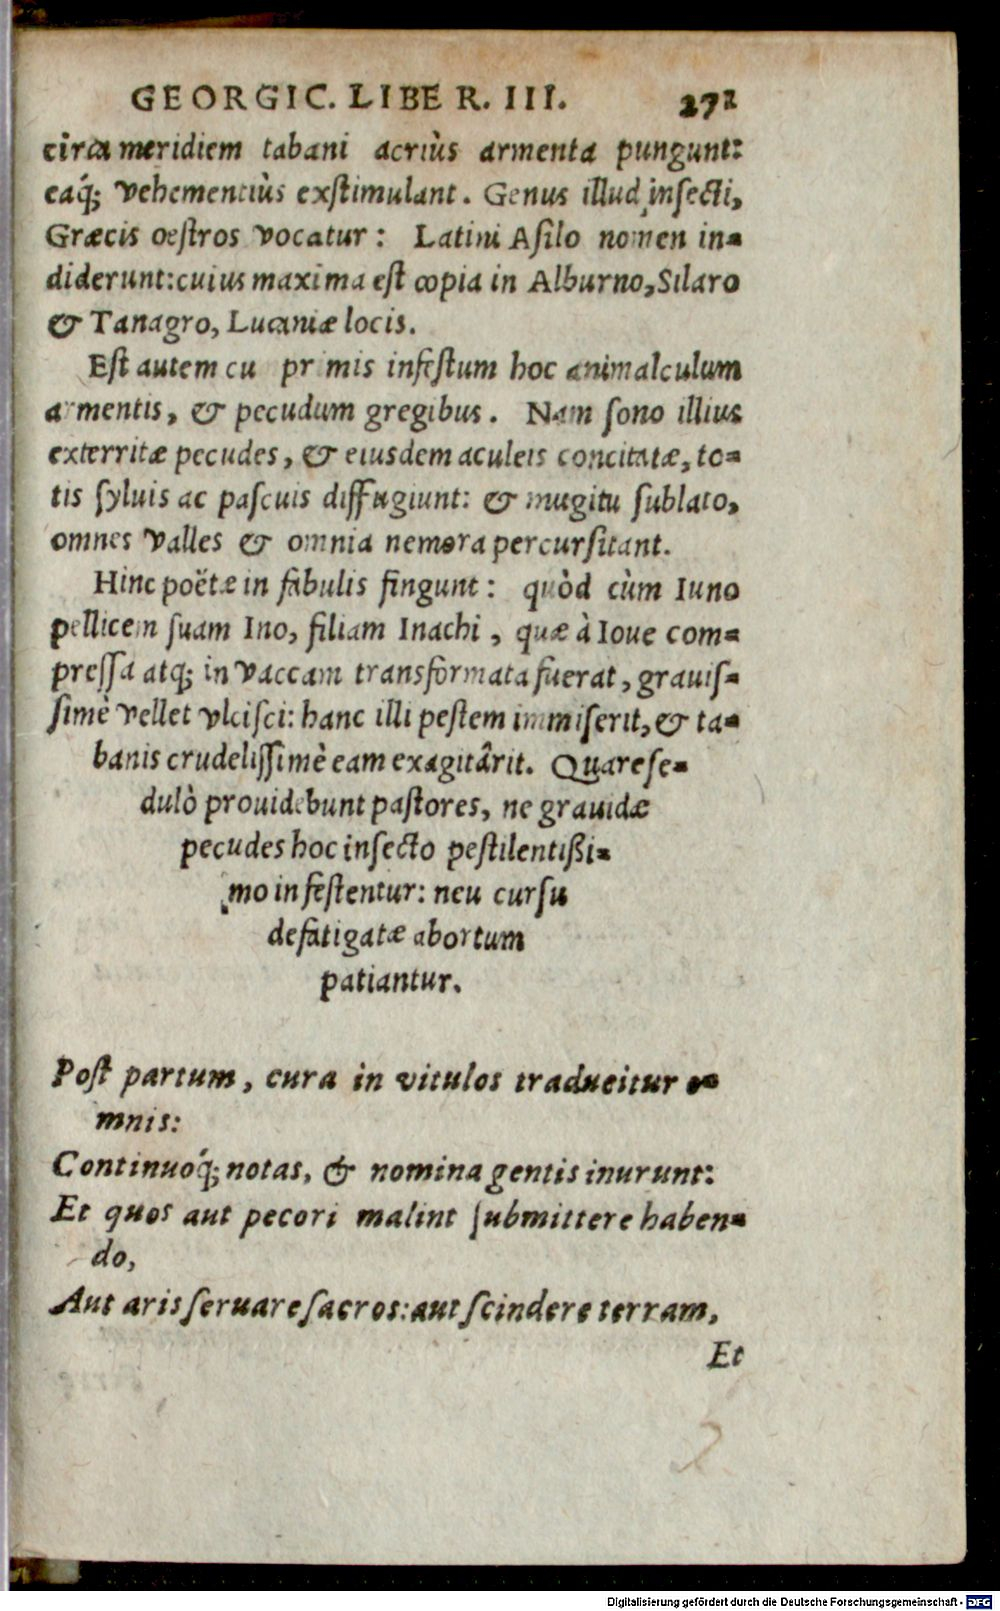 GEORGIC. LIBER. III. 272
circa meridiem tabani acriùs armenta pungunt:
eaq́; vehementiùs exstimulant. Genus illud insecti,
Græcis oestros vocatur: Latini Asilo nomen in-
diderunt: cuius maxima est copia in Alburno, Silaro
& Tanagro, Lucaniæ locis.
Est autem cu pr mis infestum hoc animalculum
armentis, & pecudum gregibus. Nam sono illius
exterritæ pecudes, & eiusdem aculeis concitatæ, to-
tis syluis ac pascuis diffugiunt: & mugitu sublato,
omnes valles & omnia nemora percursitant.
Hinc poëtæ in fabulis fingunt: quòd cùm Iuno
pellicem suam Ino, filiam Inachi, quæ à Ioue com-
pressa atq; in vaccam transformata fuerat, grauis-
simè vellet vlcisci: hanc illi pestem immiserit, & ta-
banis crudelissimè eam exagitârit. Quare se-
dulò prouidebunt pastores, ne grauidæ
pecudes hoc insecto pestilentißi-
mo infestentur: neu cursu
defatigatæ abortum
patiantur.
Post partum, cura in vitulos traducitur o-
mnis:
Continuoq́; notas, & nomina gentis inurunt:
Et quos aut pecori malint submittere haben-
do,
Aut aris seruare sacros: aut scindere terram,
Et
Digitalisierung gefördert durch die Deutsche Forschungsgemeinschaft - DFG